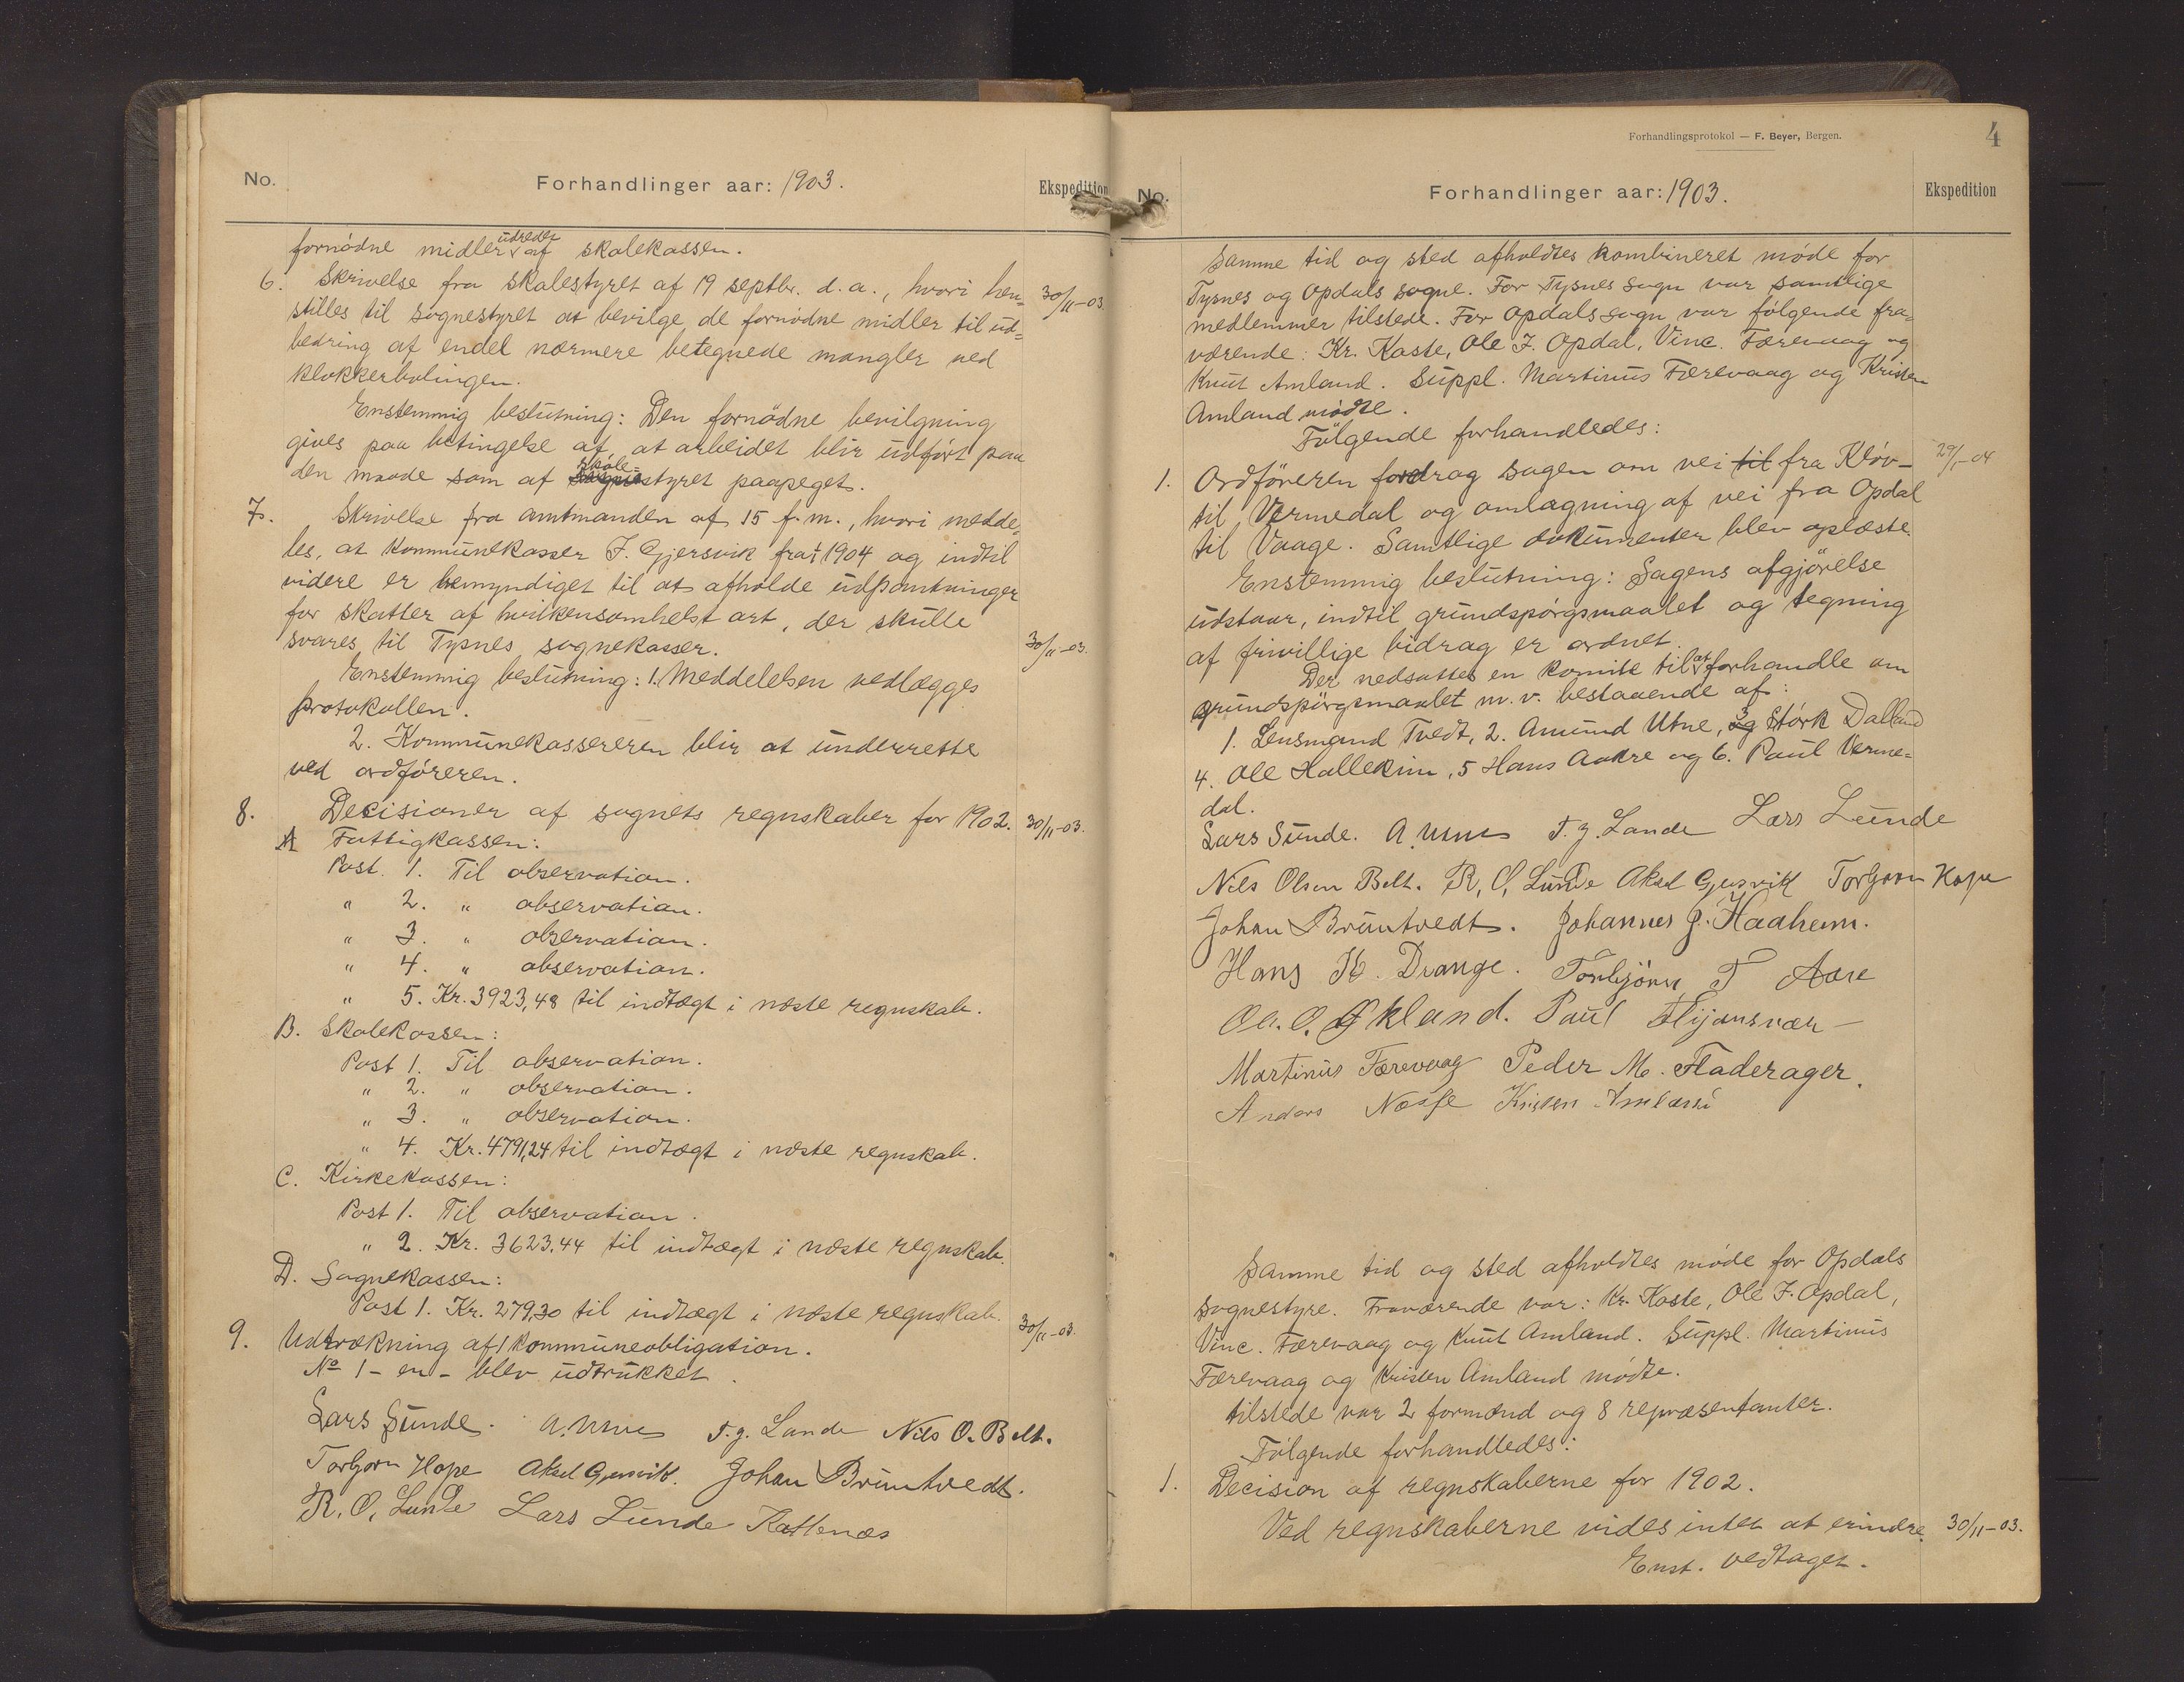 No.
Forhandlinger aar: 1903.
Ekspedition
fornødne midler udredes af skolekassen.
6. Skrivelse fra skolestyret af 19 septbr. d.a., hvori hen= 30/11-03.
stilles til sognestyret at bevilge de fornødne midler til ud=
bedring af endel nærmere betegnede mangler ved
klokkerboligen.
Enstemmig beslutning: Den fornødne bevilgning
gives paa betingelse af, at arbeidet blir udført paa
den maade som af skole=styret paapeget.
7. Skrivelse fra amtmanden af 15 f.m., hvori medde=
les, at kommunekasser J. Gjersvik fra 1/1 1904 og indtil
videre er bemyndiget til at afholde udpantninger
for skatter af hvilkensomhelst art, der skulle
svares til Tysnes sognekasser. 30/11-03.
Enstemmig beslutning: 1. Meddelelsen vedlægges
protokollen.
2. Kommunekassereren blir at underrette
ved ordføreren.
8. Decisioner af sognets regnskaber for 1902. 30/11-03.
A Fattigkassen:
Post. 1. Til observation.
" 2. " observation.
" 3. " observation.
" 4. " observation.
" 5. Kr. 3923,48 til indtægt i næste regnskab.
B. Skolekassen:
Post 1. Til observation.
" 2. " observation.
" 3. " observation.
" 4. Kr. 4791,24 til indtægt i næste regnskab.
C. Kirkekassen:
Post 1. Til observation.
" 2. Kr. 3623,44 til indtægt i næste regnskab.
D. Sognekassen:
Post 1. Kr. 279,30 til indtægt i næste regnskab.
9. Udtrækning af 1 kommuneobligation. 30/11-03.
No 1 - en - blev udtrukket.
Lars Sunde. A. Utne T. J. Lande Nils O. Belt.
Torbjørn Hope Aksel Gjersvik. Johan Bruntvedt.
R. O. Lunde Lars Lunde Kattenæs
Forhandlingsprotokol — F. Beyer, Bergen.
4
No.
Forhandlinger aar: 1903.
Ekspedition
Samme tid og sted afholdtes kombineret møde for
Tysnes og Opdals sogne. For Tysnes sogn var samtlige
medlemmer tilstede. For Opdals sogn var følgende fra=
værende: Kr. Kaste, Ole J. Opdal, Vinc. Færevaag og
Knut Amland. Suppl. Martinus Færevaag og Kristen
Amland mødte.
Følgende forhandledes:
1. Ordføreren foredrog sagen om vei til fra Kløv- 29/1-04
til Vermedal og omlægning af vei fra Opdal
til Vaage. Samtlige dokumenter blev oplæste.
Enstemmig beslutning: Sagens afgjørelse
udstaar, indtil grundspørgsmaalet og tegning
af frivillige bidrag er ordnet.
Der nedsattes en komite til at forhandle om
grundspørgsmaalet m.v. bestaaende af:
1. Lensmand Tvedt, 2. Amund Utne, 3 Størk Dalland
4. Ole Hallekim, 5 Hans Aakre og 6. Paul Verme=
dal.
Lars Sunde. A. Utne T. J. Lande Lars Lunde
Nils Olsen Belt. R. O. Lunde Aksel Gjersvik Torbjørn Hope
Johan Bruntvedt. Johannes J. Haaheim.
Hans K. Drange. Torbjörn T Aare
Ol. O. Økland. Paul Flijansvær
Martinus Færevaag Peder M. Fladerager.
Anders Næsse Kristen Amland
Samme tid og sted afholdtes møde for Opdals
sognestyre. Fraværende var: Kr. Kaste, Ole J. Opdal,
Vinc. Færevaag og Knut Amland. Suppl. Martinus
Færevaag og Kristen Amland mødte.
Tilstede var 2 formænd og 8 repræsentanter.
Følgende forhandledes:
1. Decision af regnskaberne for 1902.
Ved regnskaberne vides intet at erindre. 30/11-03.
Enst. vedtaget.